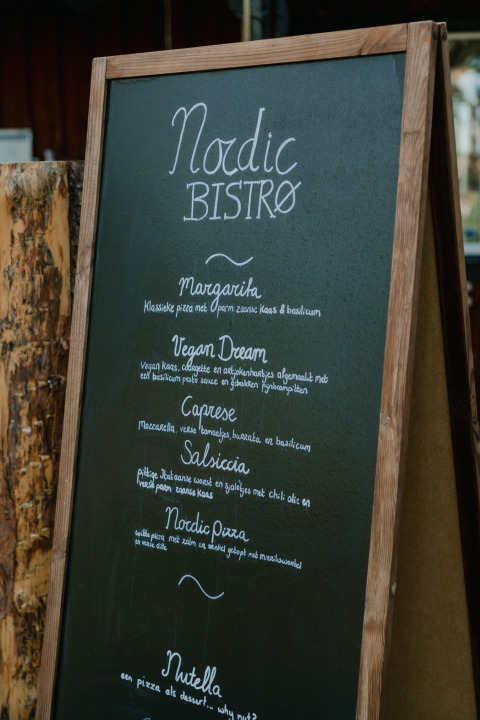 Nordic
BISTRØ
Margarita
Klassieke pizza met parm zaanse kaas & basilicum
Vegan Dream
Vegan kaas, courgette en artisjokenhartjes afgemaakt met
een basilicum pesto sauce en gebakken pijnboompitten
Caprese
Mozzarella, verse tomaatjes, burrata en basilicum
Salsiccia
pittige Italiaanse worst en sjalotjes met chili olie en
verse parm zaanse kaas
Nordic Pizza
witte pizza met zalm en venkel getopt met mierikswortel
en verse dille
Nutella
een pizza als dessert... why not?